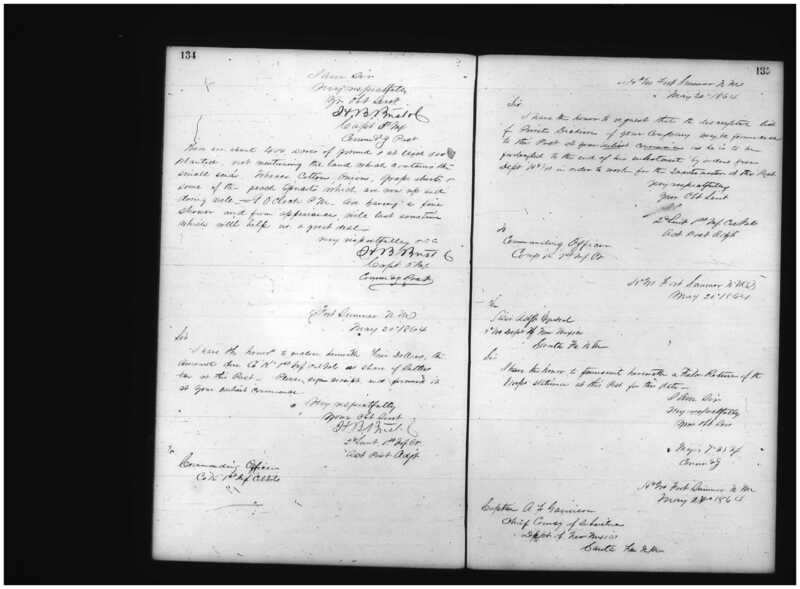 134
I am Sir
Very respectfully
Yr Obt Servt
H. B. Bristol
Capt 5" Inf
Comm'd'g Post
There are about 400 acres of ground at
planted not mentioning the land which contains the
small seeds. Whereas Cotton, Onions,
some of the which are now up and
doing well. O'Clock P.M. are having a fine
shower and from appearances, will last sometime
which will help us a great deal.
Very respectfully &c
H B Bristol
Capt 5" Inf
Comm'd'g Post
Fort Sumner N.M.
May 20" 1864
Sir
I have the honor to enclose herewith Dollars, the
amount due Co "K" 1st Inf Cal Vols as share of
tax at this Post. Please sign receipt and forward it
at your earliest convenience.
Very respectfully
Your Obt Servt
H B Bristol
2d Lieut 1st Inf
Act Post Adjt
To
Commanding Officer
Co K 1st Inf Cal Vols
135
Hd Qrs Fort Sumner N. Mex
May 20" 1864
Sir
I have the honor to request that the descriptive list
of Private of your Company may be forwarded
to this Post at your earliest convenience as he is to be
to the end of his enlistment by orders from
Dept Hd Qrs in order to work for the at this Post
Very respectfully
Your Obt Servt
2d Lieut 1st Inf Cal Vols
Act Post Adjt
To
Commanding Officer
Comp 1st Inf
Hd Qrs Fort Sumner N. Mex
May 20" 1864
To
Adjt General
Hd Qrs Dept of New Mexico
Santa Fe N. M.
Sir
I have the honor to forward herewith a Return of the
Troops stationed at this Post for this date.
I Am Sir
Very respectfully
Your Obt Serv
Major 7" US Inf
Comm'd'g
Hd Qrs Fort Sumner N. Mex
May 1864
Captain A. F. Garrison
Chief Comsy of Subsistence
Dept of New Mexico
Santa Fe N. M.